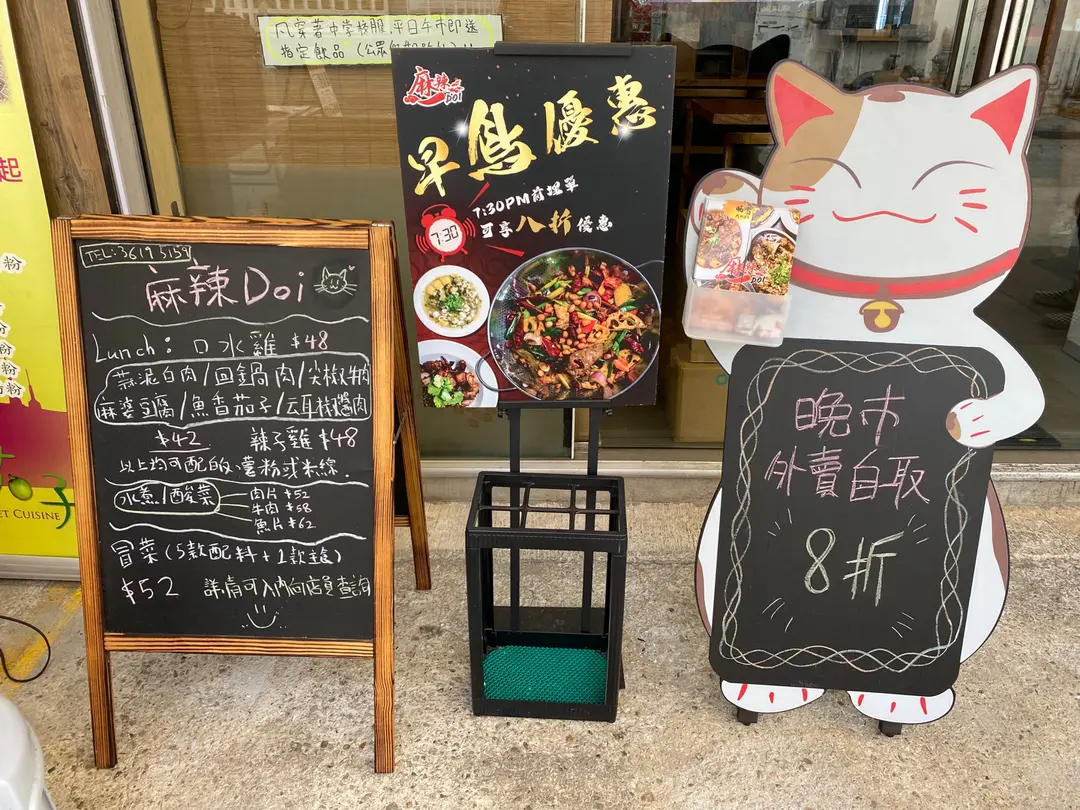 凡穿著中學校服,平日午市即送
指定飲品
起
粉
粉
粉
ET CUISINE
TEL: 3619 5159
麻辣Doi
Lunch: 口水雞 $48
蒜泥白肉/回鍋肉/尖椒牛肉
麻婆豆腐/魚香茄子/云耳椒醬肉
$42 辣子雞 $48
以上均可配白飯、薯粉或米線.
水煮/酸菜
肉片 $52
牛肉 $58
魚片 $62
冒菜(5款配料+1款主食)
$52 詳情可入內向店員查詢
麻辣之DOI
早鳥優惠
7:30PM前埋單
可享八折優惠
7:30
麻辣之DOI
晚市
外賣自取
8折